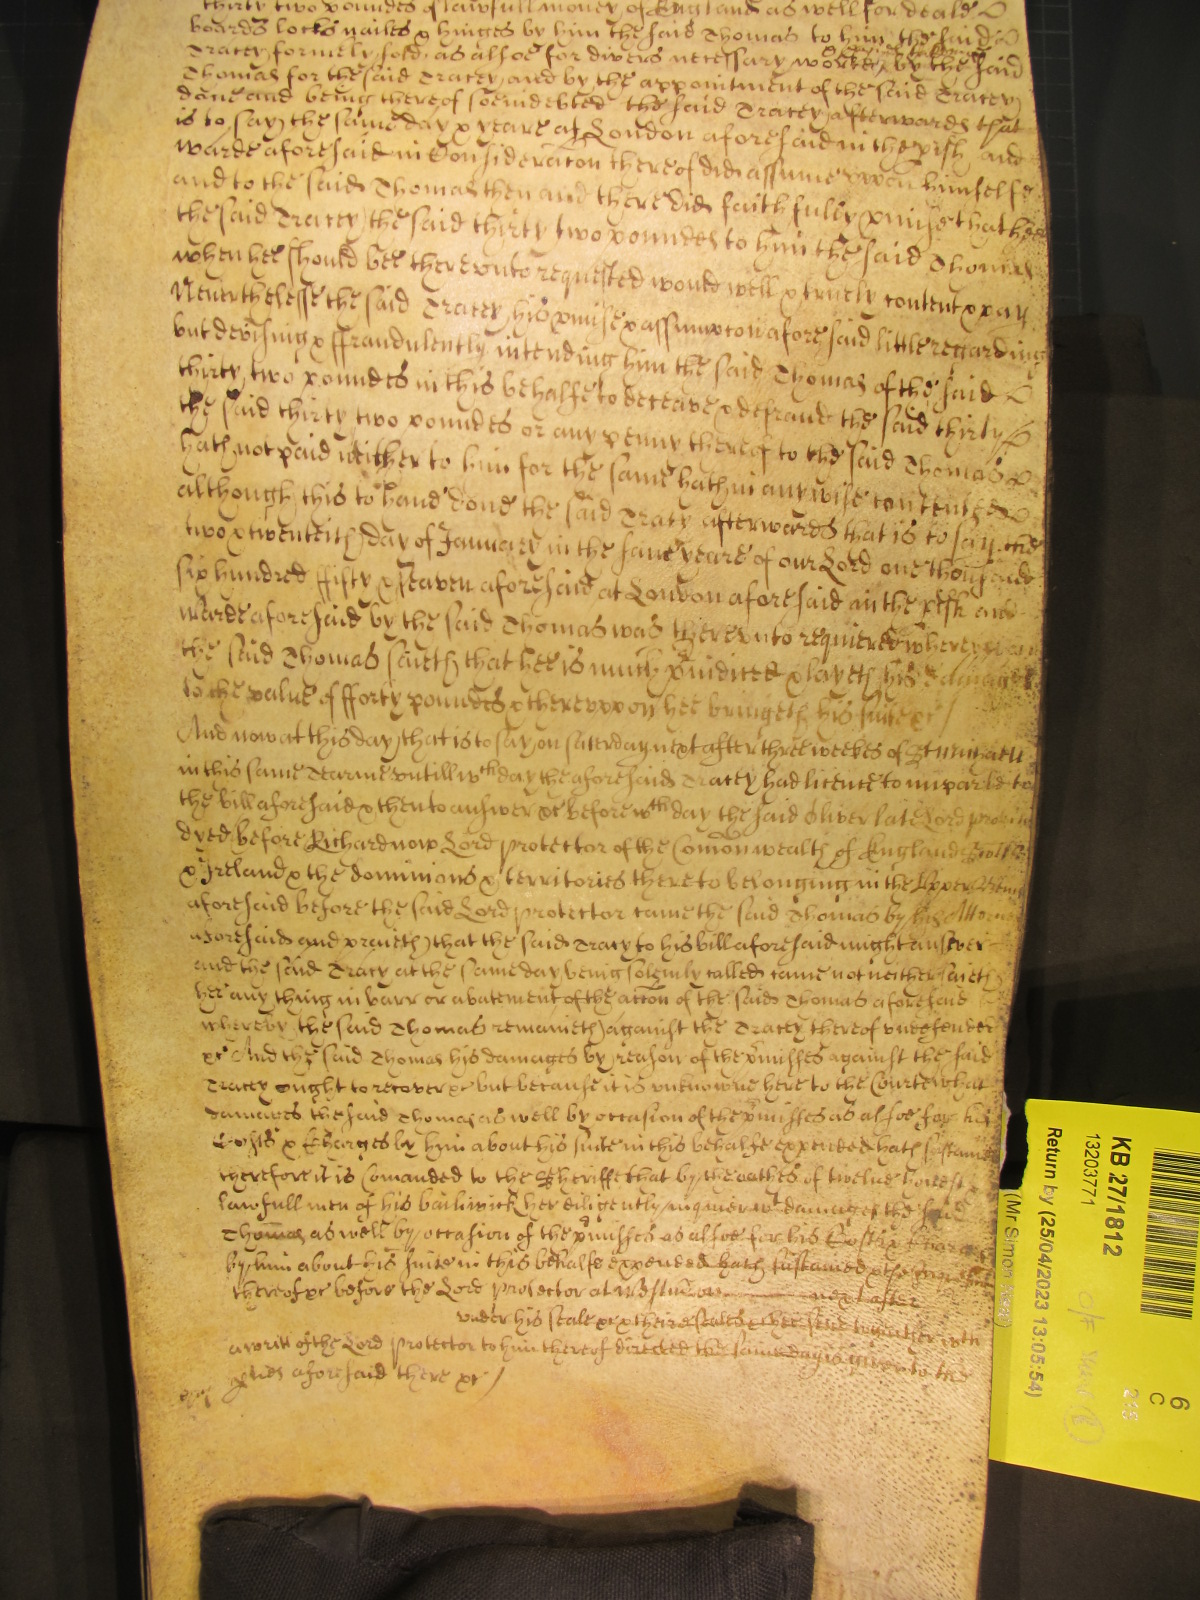 thirty two poundes of lawfull money of England as well for deale
boards locks nailes & hinges by him the said Thomas to him the said
Tracey formely sold as alsoe for divers necessary workes by the said
Thomas for the said Tracey and by the appointment of the said Tracey
done and being thereof soe indebted the said Tracey afterwards that
is to say the same day & yeare at London aforesaid in the pish and
warde aforesaid in Consideracon thereof did assume upon himselfe
and to the said Thomas then and there did faithfully pmise that hee
the said Tracey the said thirty two poundes to him the said Thomas
when hee should bee thereunto requested would well & truely content & pay
Neverthelesse the said Tracey his pmise & assumpcon aforesaid little regarding
but devising & ffraudulently intending him the said Thomas of the said
thirty two poundes in this behalfe to deceave & defraude the said thirty
the said thirty two poundes or any penny thereof to the said Thomas
hath not paid neither to him for the same hath in any wise contented
although this to hand done the said Tracy afterwards that is to say the
two & twenteith day of January in the same yeare of our Lord one thousand
six hundred ffifty & seaven aforesaid at London aforesaid in the pish and
warde aforesaid by the said Thomas was thereunto requiered whereupon
the said Thomas saieth that hee is much pjudiced & layeth his damages
to the value of fforty poundes & thereuppon hee bringeth his suite &c
And now at this day that is to say on Saterday next after three weekes of St Michaell
in this same Tearme untill wch day the aforesaid Tracey had licence to imparle to
the bill aforesaid & then to answer &c before wch day the said Oliver late Lord
dyed before Richard now Lord Protector of the Comonwealth of England
& Ireland & the dominions & territories thereto belonging in the Upper Bench
aforesaid before the said Lord Protector came the said Thomas by his Attorney
aforesaid and prayeth that the said Tracy to his bill aforesaid might answer
and the said Tracy at the same day being solemly called came not neither saieth
hee any thing in barr or abatement of the accon of the said Thomas aforesaid
whereby the said Thomas remaineth against the Tracey thereof undefended
&c And the said Thomas his damages by reason of the pmisses against the said
Tracey ought to recover &c but because it is unknowne here to the Courte what
damages the said Thomas as well by occasion of the pmisses as alsoe for his
Costs & Charges by him about his suite in this behalfe expended hath sustained
therefore it is Comanded to the Sheriffe that by the oathes of twelve honest
lawfull men of his bailiwick hee diligently inquier wt damages the said
Thomas as well by occasion of the pmisses as alsoe for his Costs & Charges
by him about his suite in this behalfe expended hath sustained & the
thereof &c before the Lord Protector at Westm on next after
under his seale &c & their seales & hee send together with
a writt of the Lord Protector to him thereof directed the same day is given to the
pties aforesaid there &c
KB 27/1812
13203771
Return by (25/04/2023 13:05:54)
6
C